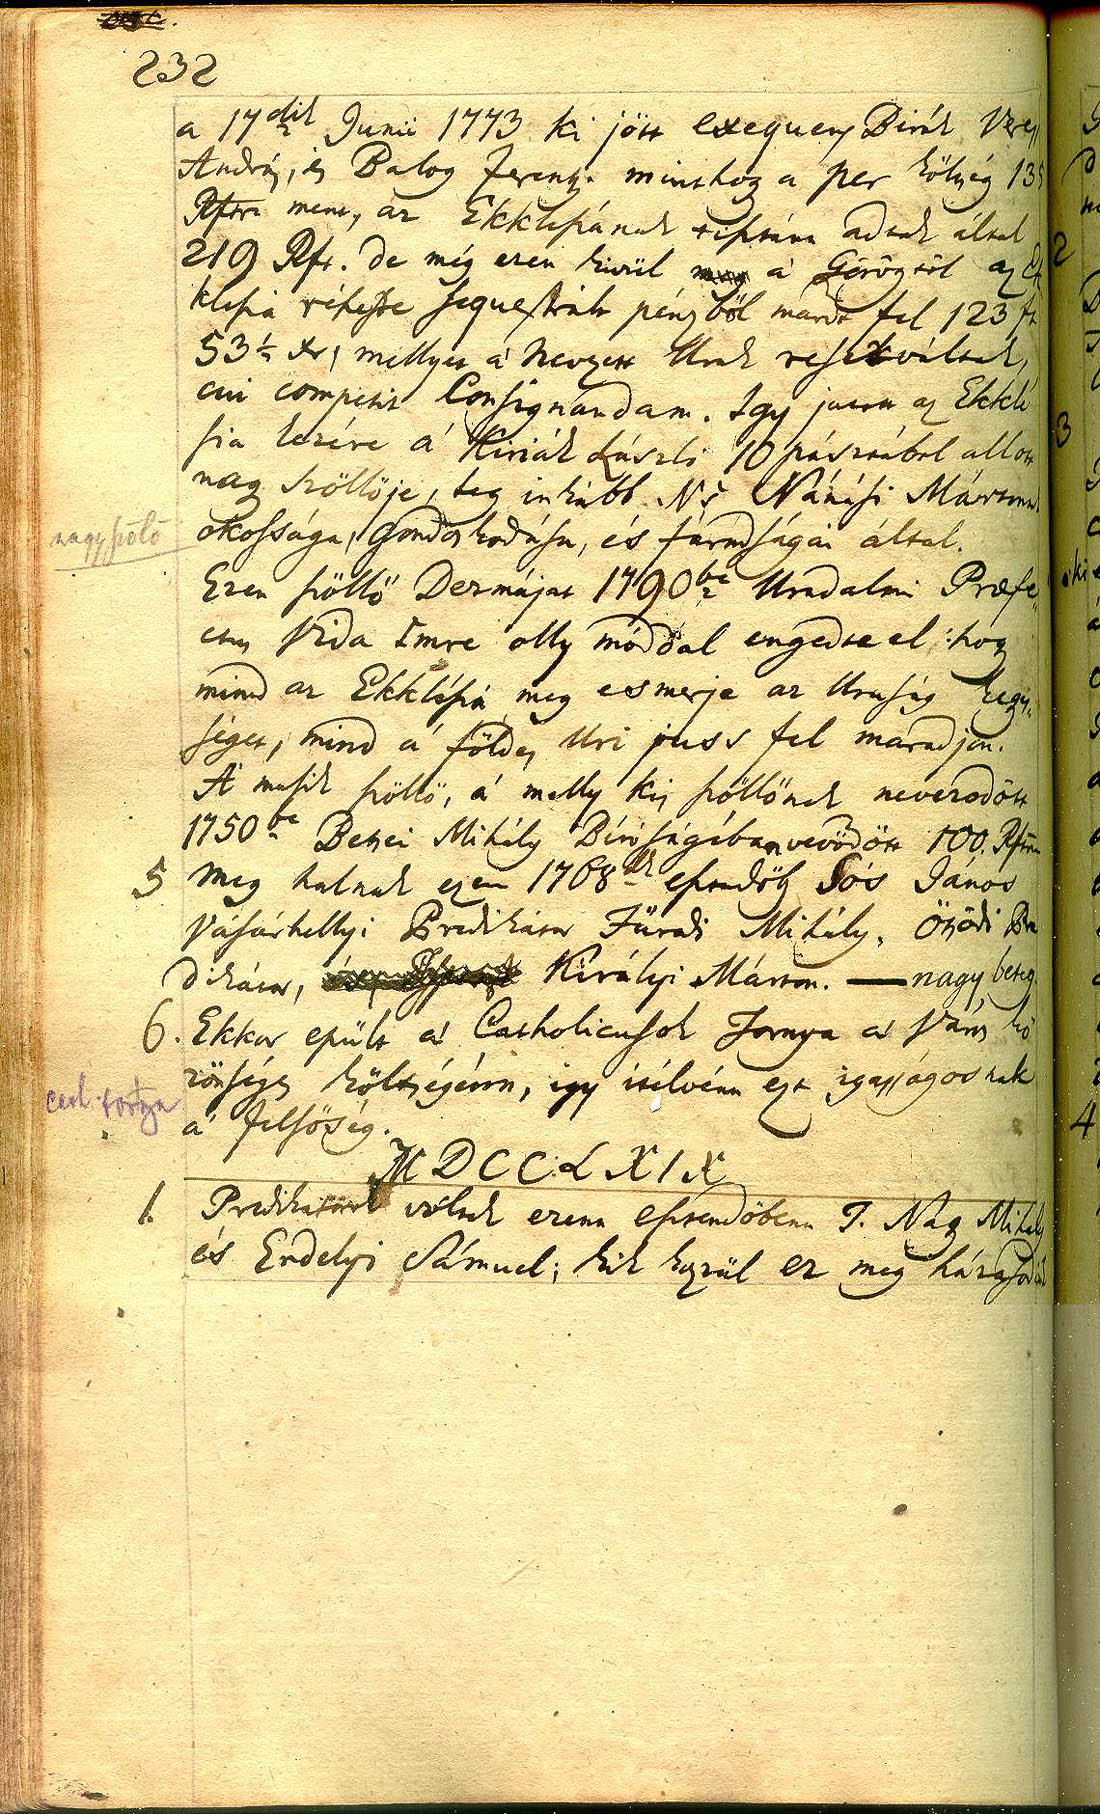 232
a 17dik Junii 1773 ki jött exequens Birák Veres
András, és Balog Ferentz. minthog a per költség 135
Rftra ment, az Ekklesiának tisztára adtak által
219 Rft. de még ezen kivül a Görögtöl az Ek
klesia részére sequestrált pénzböl maradt fel 123 ft
53½ xr, mellyet a Nevezett Urak reserváltak,
cui competit Consignandam. Igy jutott az Ekkle
sia kezére a Kiriák László 10 pásztábol allott
nag szöllöje, leg inkább Ns Nánási Márton
nagy szölö
okossága, gondoskodása, és fáradságai által.
Ezen szöllö Dezmáját 1790be Uradalmi Præfe
ctus Vida Imre olly móddal engedte el: hog
mind az Ekklésia meg esmerje az Uraság kegy
ségét, mind a földes Uri juss fel maradjon.
A másik szöllö, a melly kis szöllönek neveződött
1750be Betsei Mihály Bíróságában vevödött 100. Rfton
5 Meg halnak ezen 1768dik esztendöb Sós János
Vásárhellyi Predikátor Füredi Mihály, Ötsödi Pre
dikátor, Királyi Márton. — nagy beteg
6. Ekkor epült a Catholicusok Tornya a Város kö
zönséges költségénn, igy itélvénn ezt igasságosnak
cath. tornya
a felsöség.
MDCCLXIX
1. Predikátorok vóltak ezenn esztendöbenn T. Nag Mihály
és Erdelyi Sámuel; kik közzül ez meg házasodik